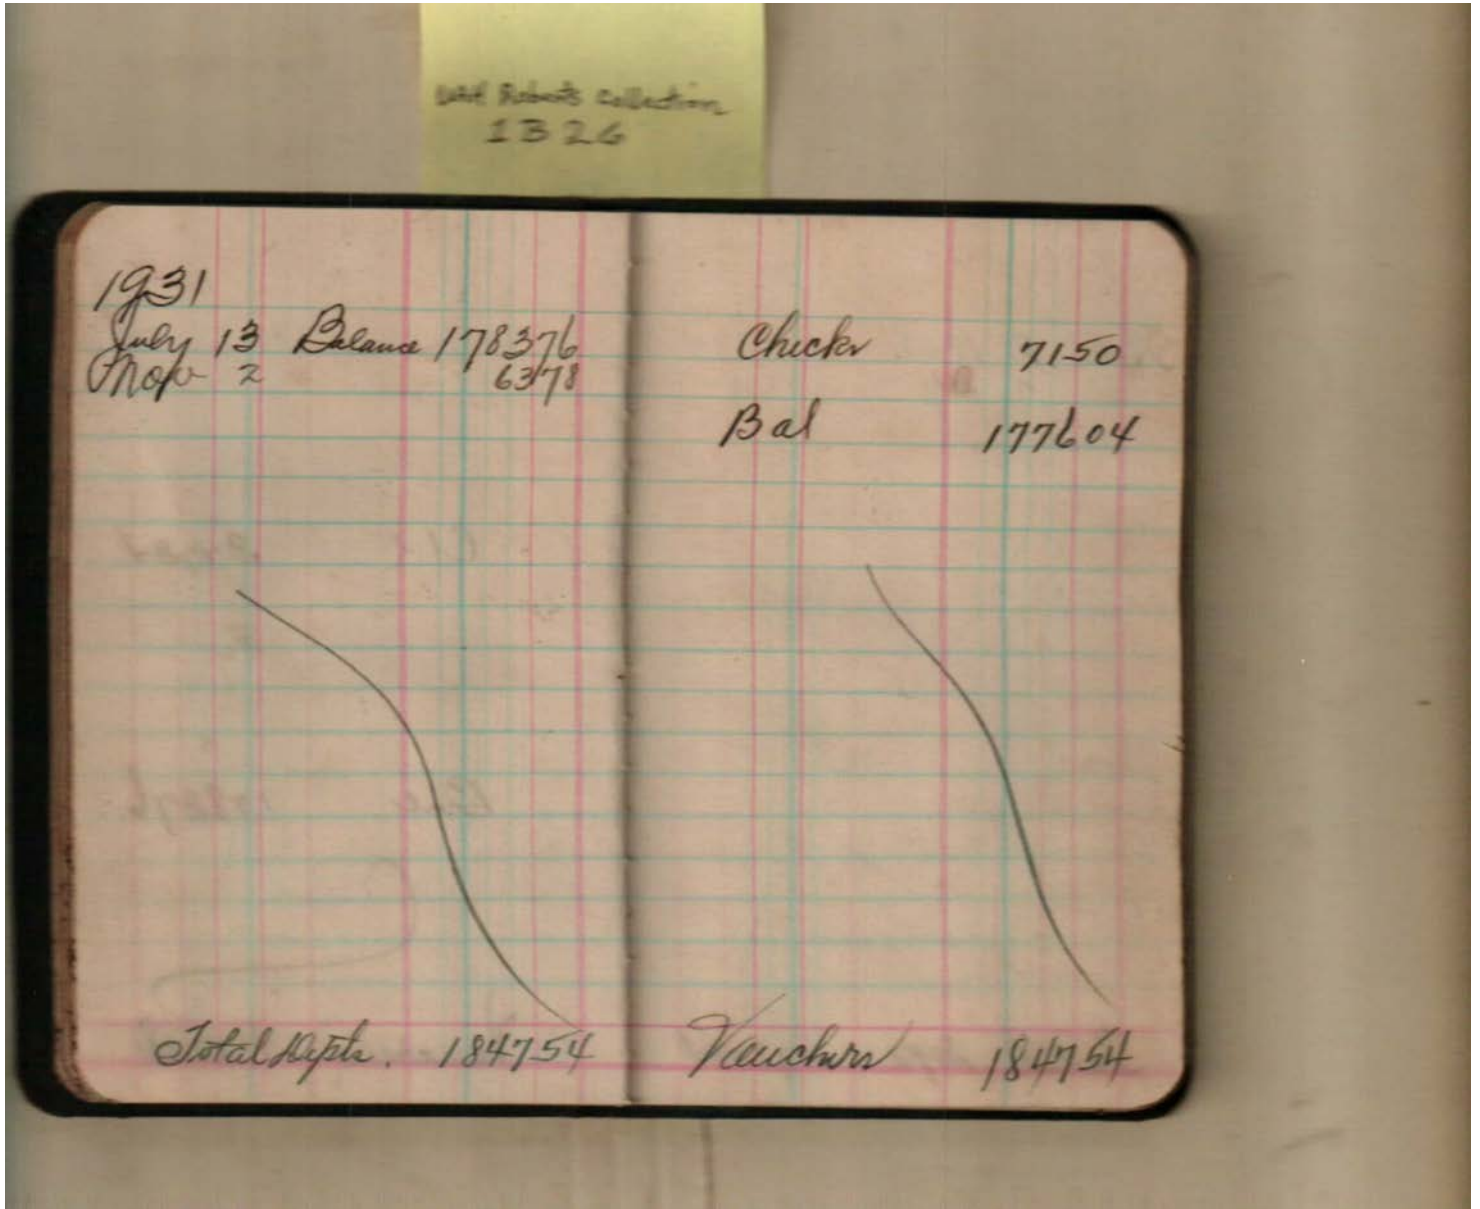 UAH Roberts Collection
1B26
1931
July 13 Balance 178376
Nov 2 6378
Total Depts. 184754
Checks 7150
Bal 177604
Vouchers 184754